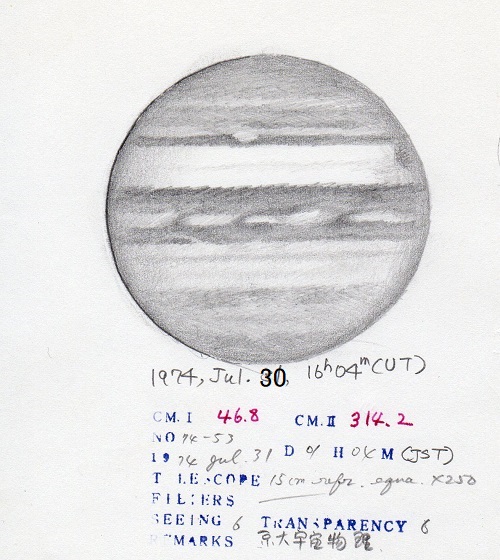 1974, Jul. 30, 16h04m(UT)
CM. I 46.8 CM. II 314.2
NO 74-53
1974 Jul. 31 D 01 H 04 M (JST)
T LE SCOPE 15cm refr. equa. ×250
FILTERS
SEEING 6 TRANSPARENCY 6
REMARKS 京大宇宙物理